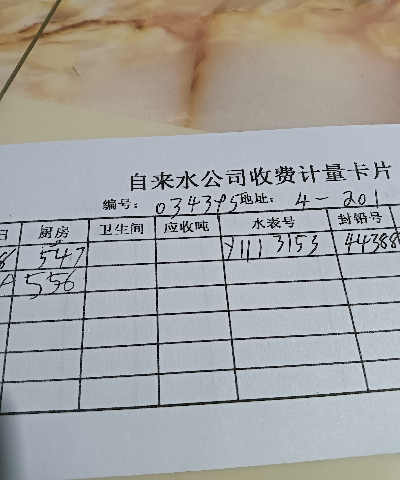 自来水公司收费计量卡片
编号: 034395 地址: 4-201
日 厨房 卫生间 应收吨 水表号 封铅号
547 Y1113153 44388
556